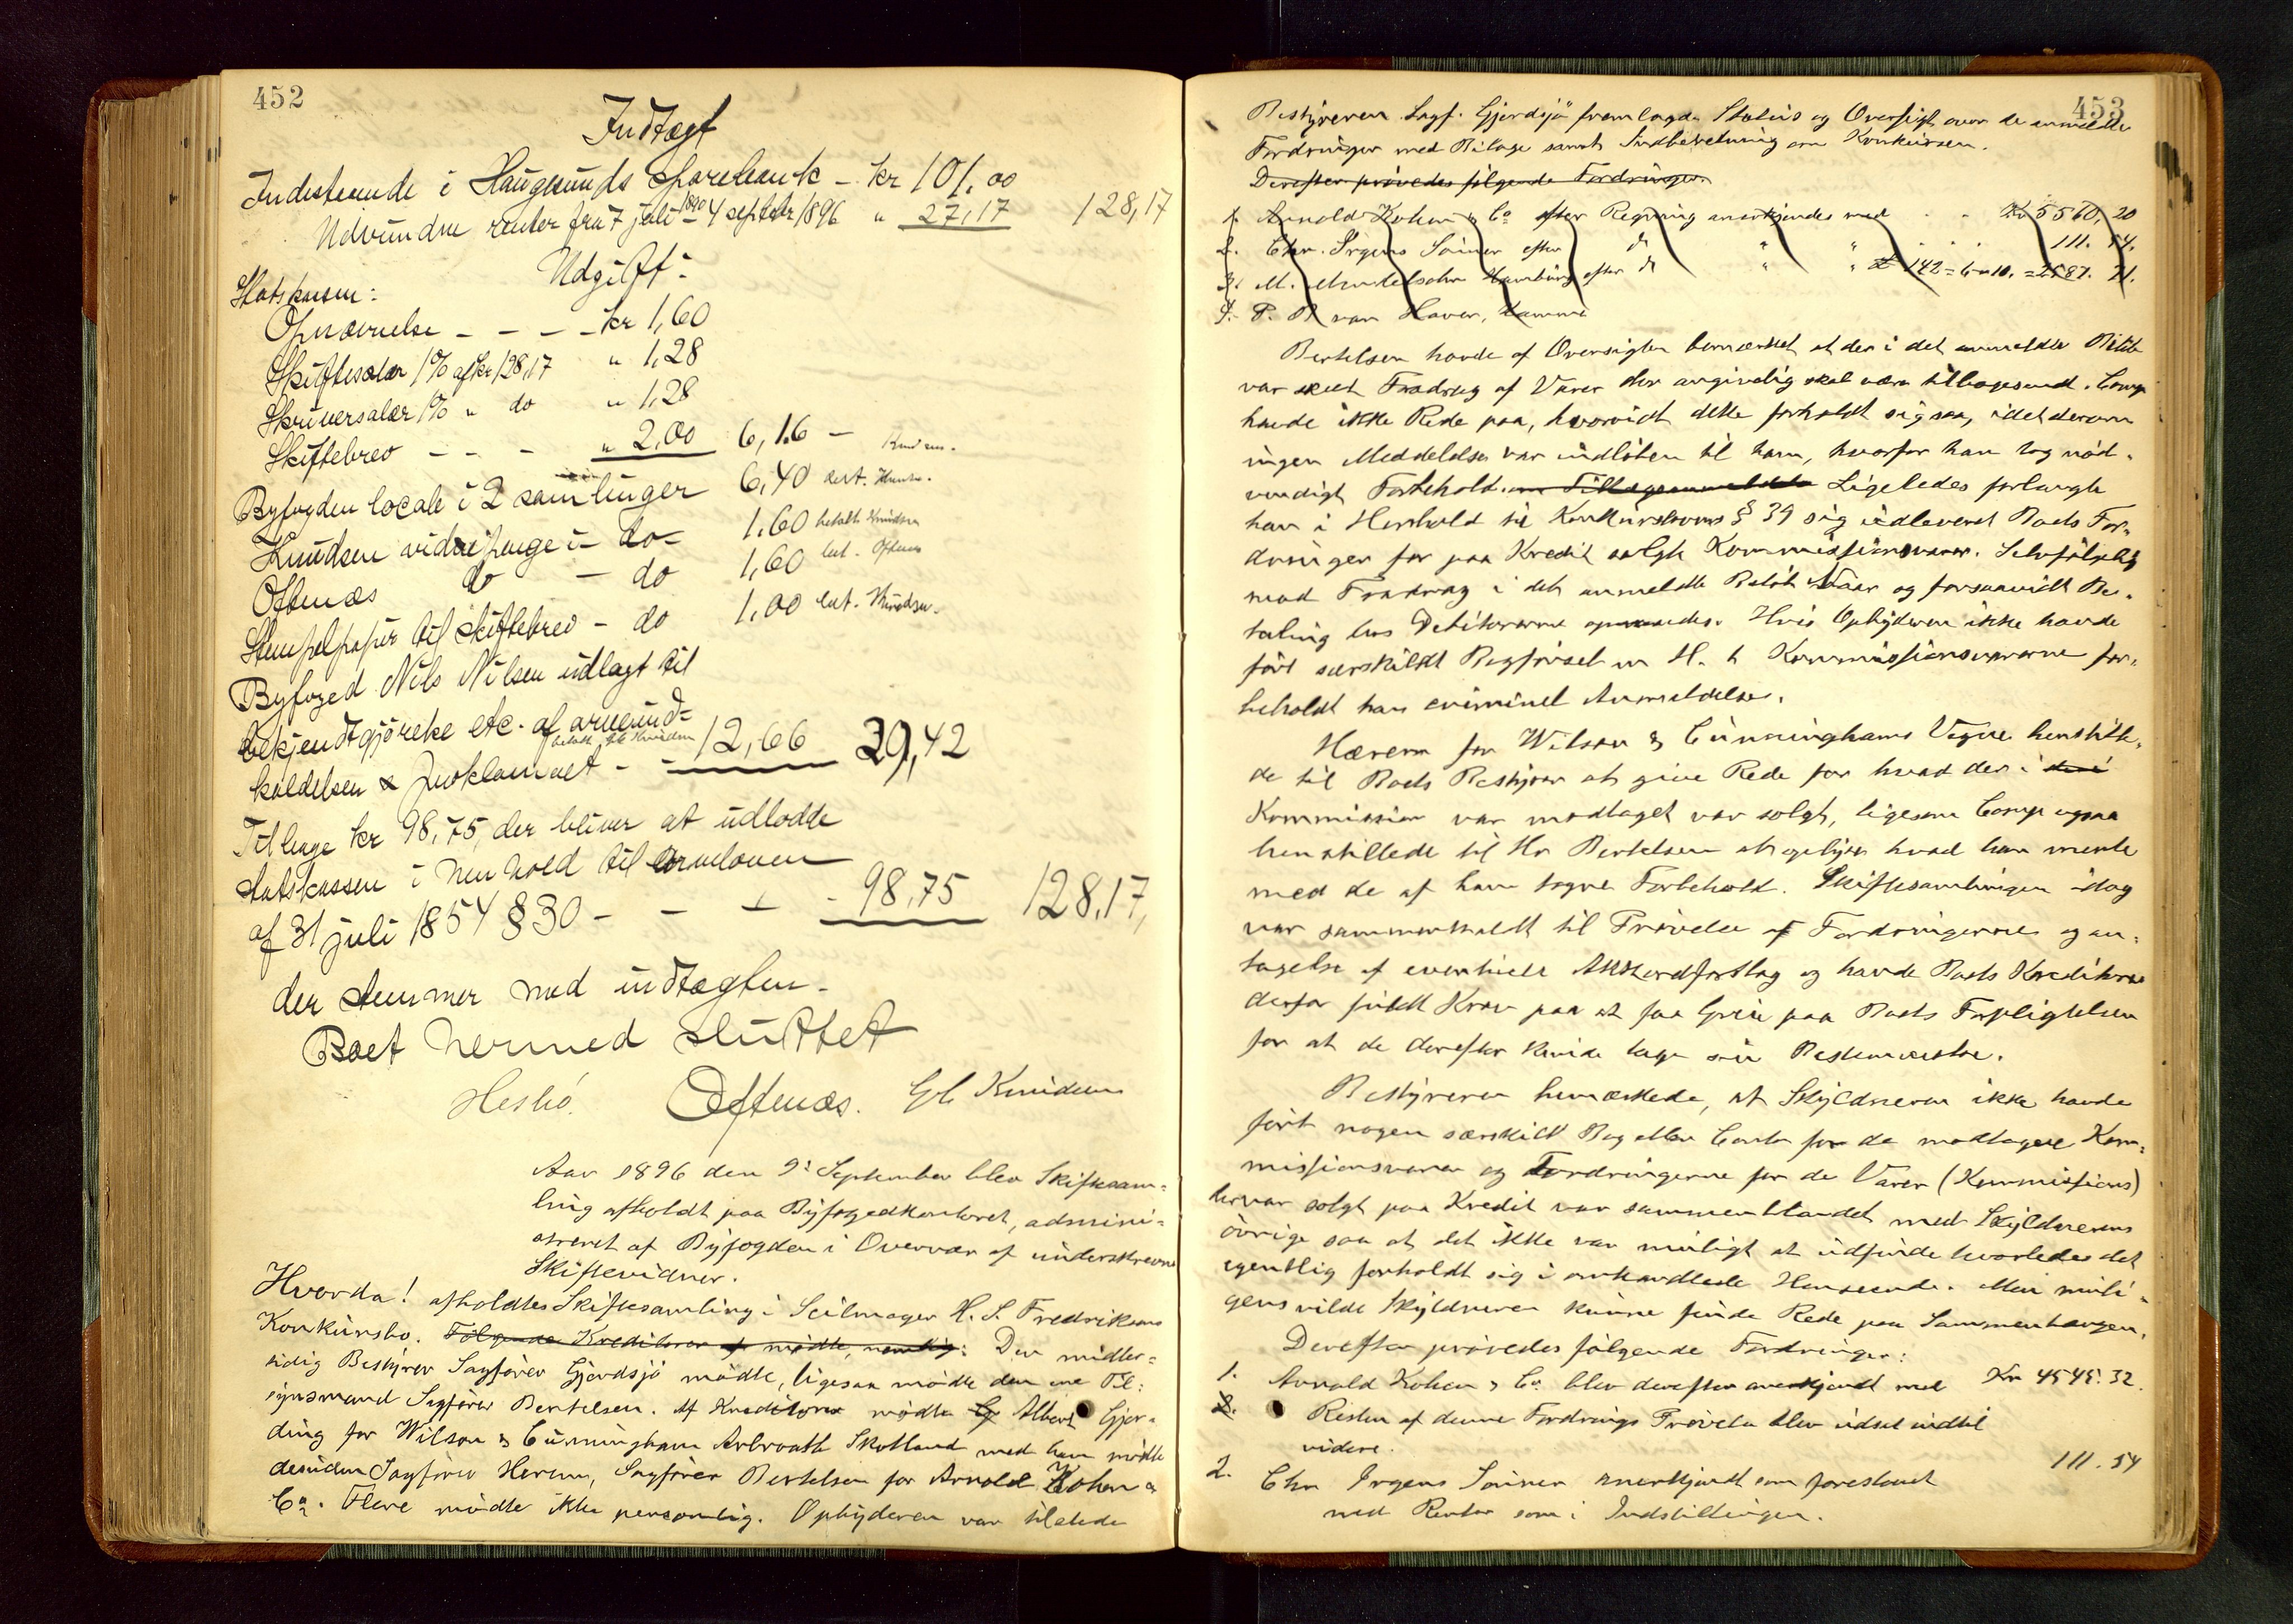 452
Indtægt
Indestaaende i Haugesunds Sparebank - kr 101.00
Udvundne renter fra 7 juli 1890 - 4 septebr 1896 " 27,17 128,17
Udgift:
Statskassen:
Opnævnelse - - - - kr 1,60
Skiftesalær 1% af kr 128,17 " 1,28
Skriversalær 1% " do " 1,28
Skiftebrev - - - " 2,00 6,16 -
Byfogden locale i 2 samlinger 6,40
Knudsen vidnepenge i - do - 1.60 betalt Knudsen
Oftenæs do - do 1,60 bet. Oftenæs
Stempelpapir til skiftebrev - do 1,00 bet. Knudsen.
Byfoged Nils Nilsen udlagt til
bekjendtgjörelse etc. af arveind-
kaldelsen & proklamaet - - 12,66 29,42
betalt Knudsen
Tilbage kr 98,75, der bliver at udlodde
Statskassen i henhold til arveloven
af 31 juli 1854 § 30 - - - - 98,75 128,17,
der stemmer med indtægten.
Boet hermed sluttet
Hesbö. Oftenæs. Knudsen
Aar 1896 den 9: September blev Skiftesam=
ling afholdt paa Byfogedkontoret, admini=
streret af Byfogden i Overvær af underskrevne
Skiftevidner.
Hvorda! afholdtes Skiftesamling i Seilmager H. S. Fredriksens
Konkursbo. Fölgende Kreditorer mödte, nemlig: Den midler=
tidig Bestyrer Sagförer Gjerdsjö mödte, ligesaa mödte den ene Til=
synsmand Sagförer Bertelsen. Af Kreditorer mödte Albert Gjer=
ding for Wilson & Cunningham Arbroath Skotland med ham mödte
desuden Sagförer Hærem, Sagförer Bertelsen for Arnold Kohen &
Co. Flere mödte ikke personlig. Opbyderen var tilstede
453
Bestyreren Sagf. Gjerdsjö fremlagde Status og Oversigt over de anmeldte
Fordringer med Bilage samt Indberetning om Konkursen.
Derefter prövedes fölgende Fordringer.
1. Arnold Kohen & Co efter Regning anerkjendes med Kr 5560,20
2. Chr. Irgens Sönner efter do " " 111.54.
3. M. Mendelsohn Hamburg efter do " " £ 142=6=10. = 2587.21.
4. P. R van Haver, Hamme
Bertelsen havde af Oversigten bemærket at der i det anmeldte Belöb
var sket Fradrag af Varer der angivelig skal være tilbagesendt. Comp
havde ikke Rede paa, hvorvidt dette forholdt sig saa, idet derom
ingen Meddelelse var indlöben til ham, hvorfor han tog nöd-
vendigt Forbehold. Ligeledes forlangte
han i Henhold til Konkurslovens § 39 sig udleveret Boets For-
dringer for paa Kredit solgte Kommissionsvarer. Selvfölgelig
mod Fradrag i det anmeldte Belöb Naar og forsaavidt Be-
taling hos Debitorerne opnaaedes. Hvis Opbyderen ikke havde
fört særskildt Bogförsel m H. t Kommissionsvarerne for-
beholdt han criminel Anmeldelse.
Hærem for Wilson & Cunninghams Vegne henstille-
de til Boets Bestyrer at give Rede for hvad der i
Kommission var modtaget var solgt, ligesom Comp ogsaa
henstillede til Hr Bertelsen at opgive hvad han mente
med de af ham tagne Forbehold. Skiftesamlingen idag
var sammenkaldt til Prövelse af Fordringerne og an-
tagelse af eventuelt Akkordforslag og havde Boets Kreditorer
derfor fuldt Krav paa at faa Greie paa Boets Forpligtelser
for at de derefter kunde tage sin Bestemmelse.
Bestyreren bemærkede, at Skyldneren ikke havde
fört nogen særskilt Bog eller Conto for de modtagne Kom=
missionsvarer og Fordringerne for de Varer (Kommissions)
der var solgt paa Kredit var sammenblandet med Skyldnerens
övrige saa at det ikke var muligt at udfinde hvorledes det
egentlig forholdt sig i omhandlede Henseende. Men muli-
gens vilde Skyldneren kunne finde Rede paa Sammenhængen.
Derefter prövedes fölgende Fordringer:
1. Arnold Kohen & Co. blev derefter anerkjendt med Kr 4545.32.
2. Resten af denne Fordrings Prövelse blev udsat indtil
videre.
2. Chr Irgens Sönner anerkjendt som foreslaaet 111.54
med Renter som i Indstillingen.